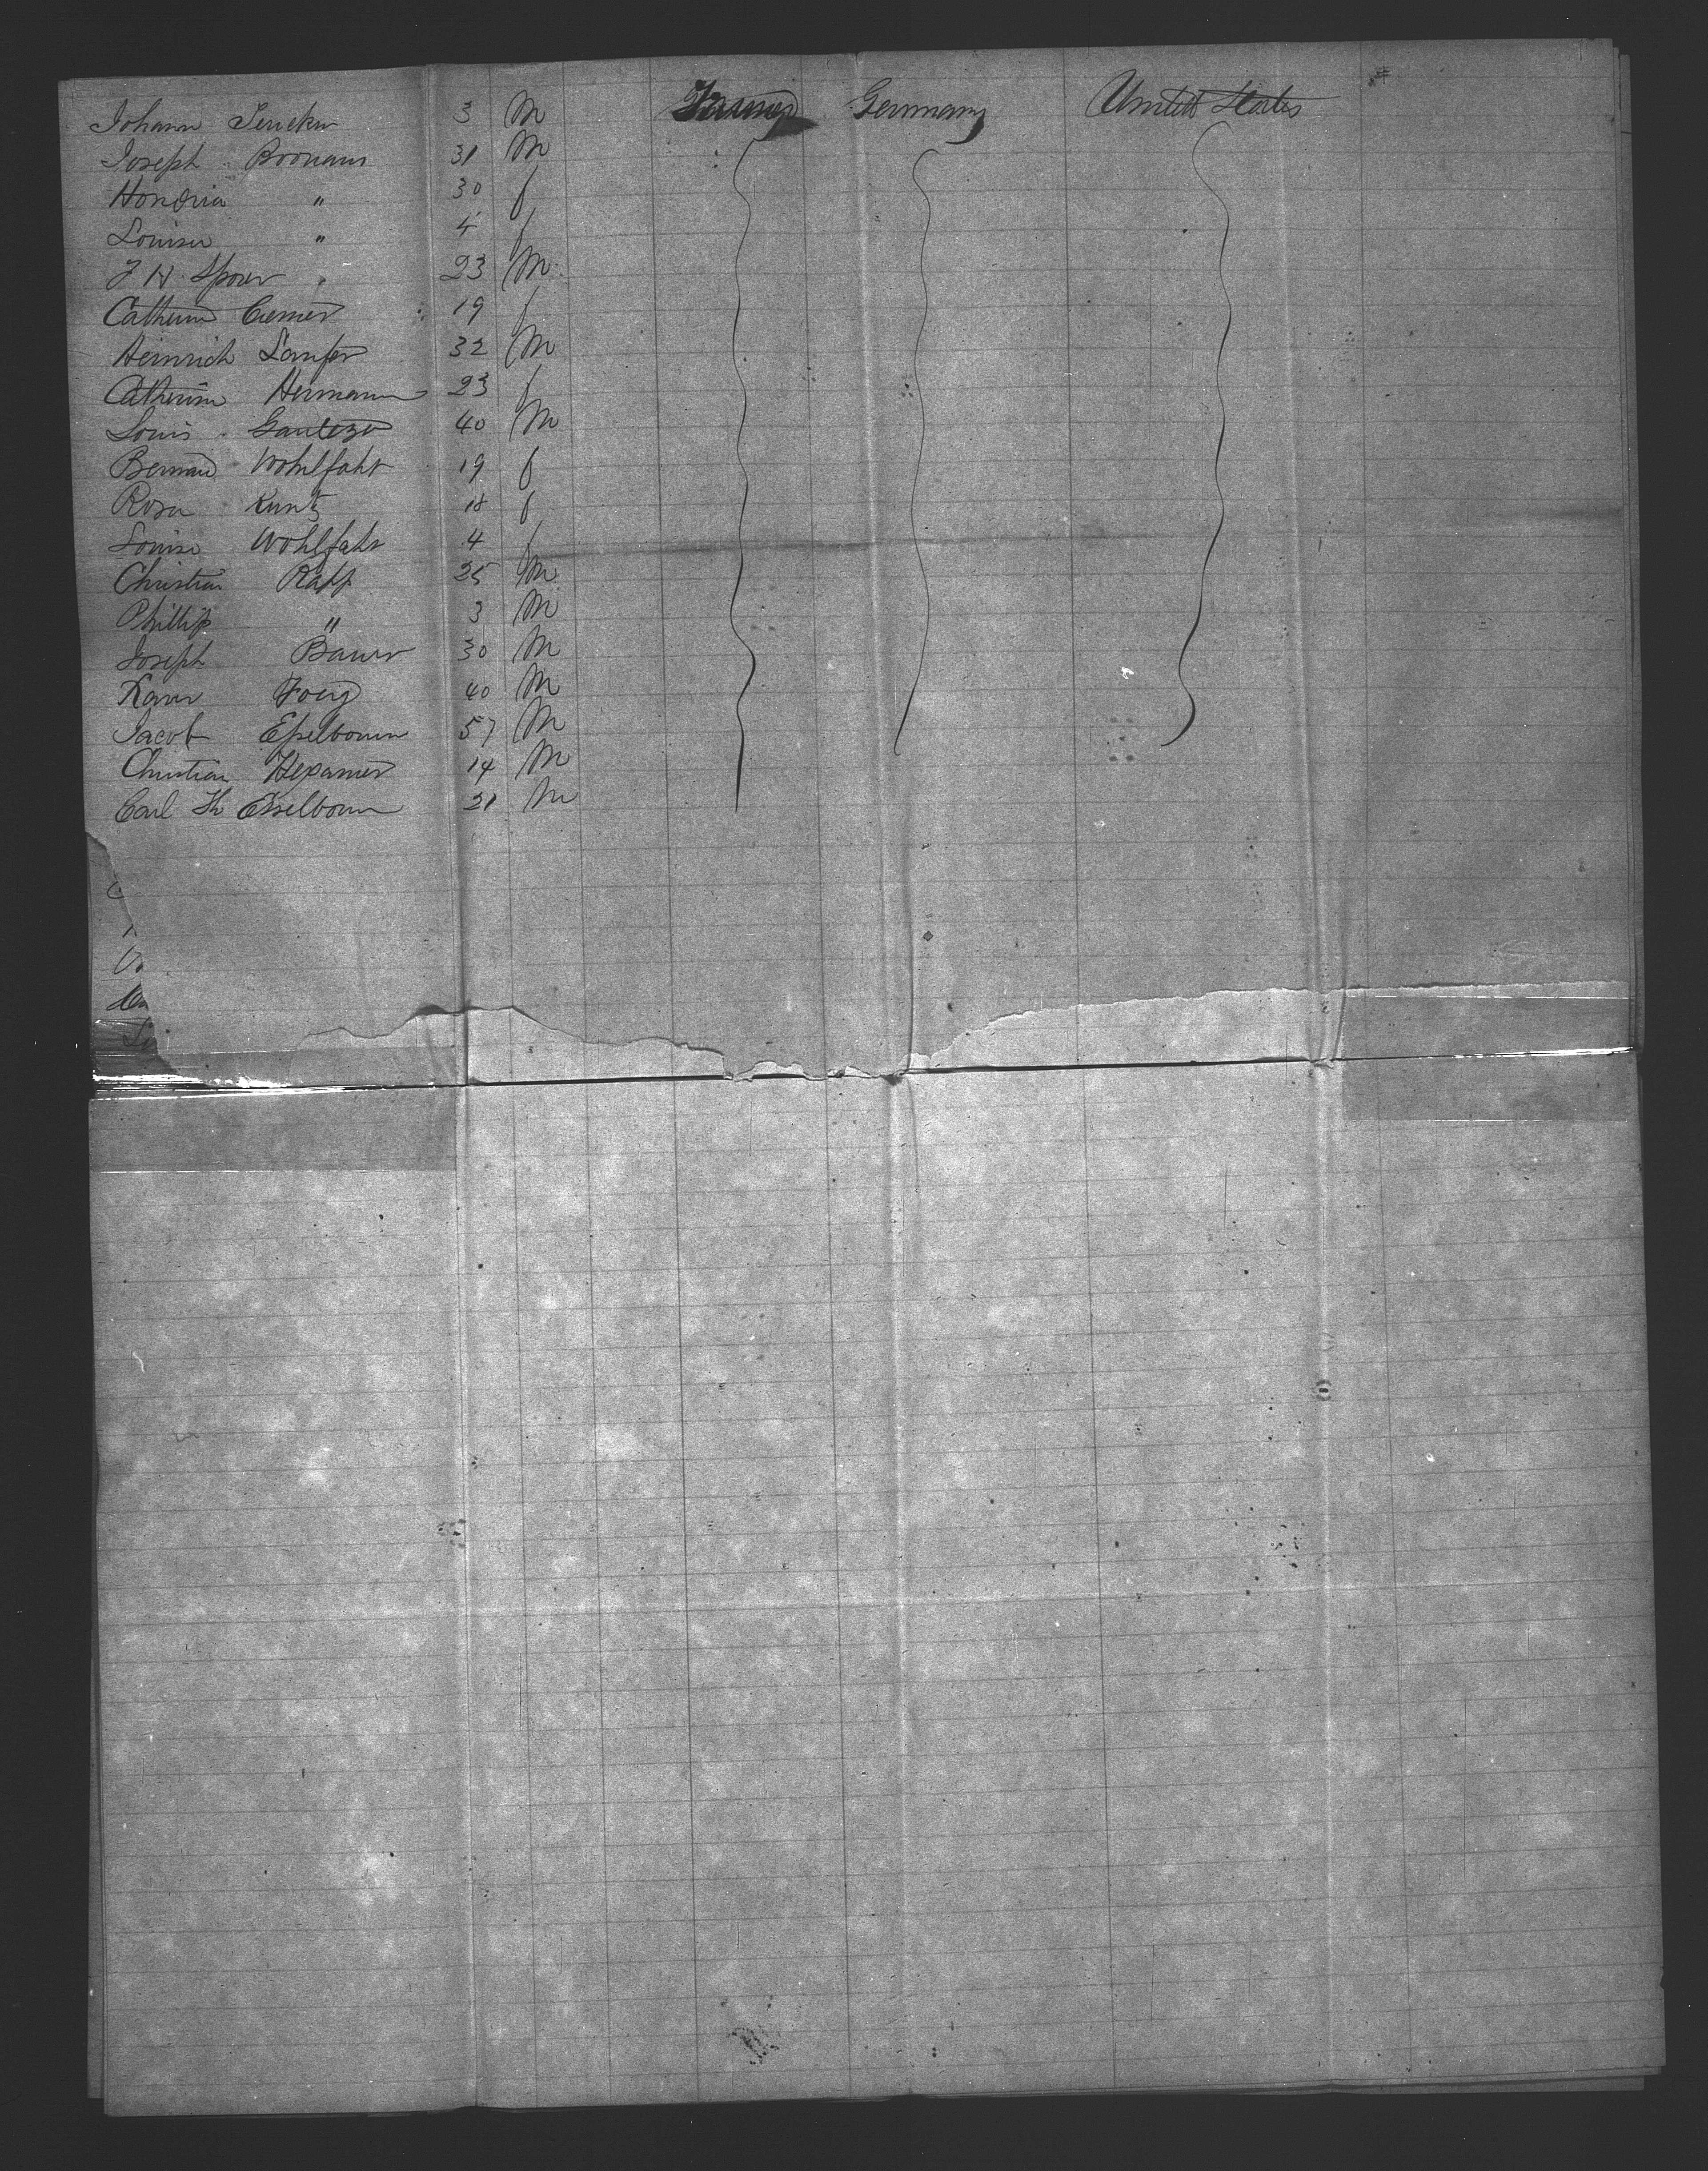 Johann 3 M Farmer Germany United States
Joseph 31 M
Honoria " 30 f
Louisa " 4 f
J H Spoer " 23 M
Catherine 19 f
Heinrich 32 M
Catherine Hermann 23 f
Louis 40 M
Bernard Wohlfaht 19 f
Rosa Kuntz 18 f
Louise Wohlfaht 4 f
Christian Rapp 25 M
Phillip " 3 M
Joseph Bauer 30 M
40 M
Jacob Esselborn 57 M
Christian Hexamer 14 M
Carl Th Esselborn 21 M